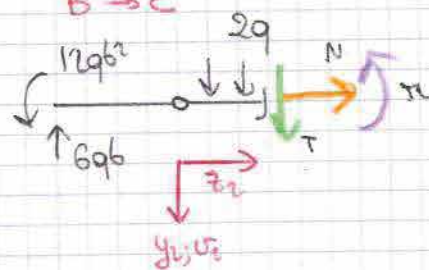 B → C
12qb²
2q
N
M
6qb
T
z₂
y₂; v₂